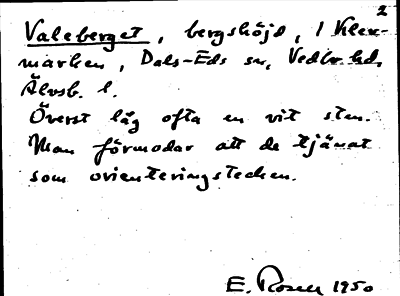 2
Valeberget, bergshöjd, i Klev-
marken, Dals-Eds sn, Vedbo hd,
Älvsb. l.
Överst låg ofta en vit sten.
Man förmodar att de tjänat
som orienteringstecken.
E. Rosell 1950